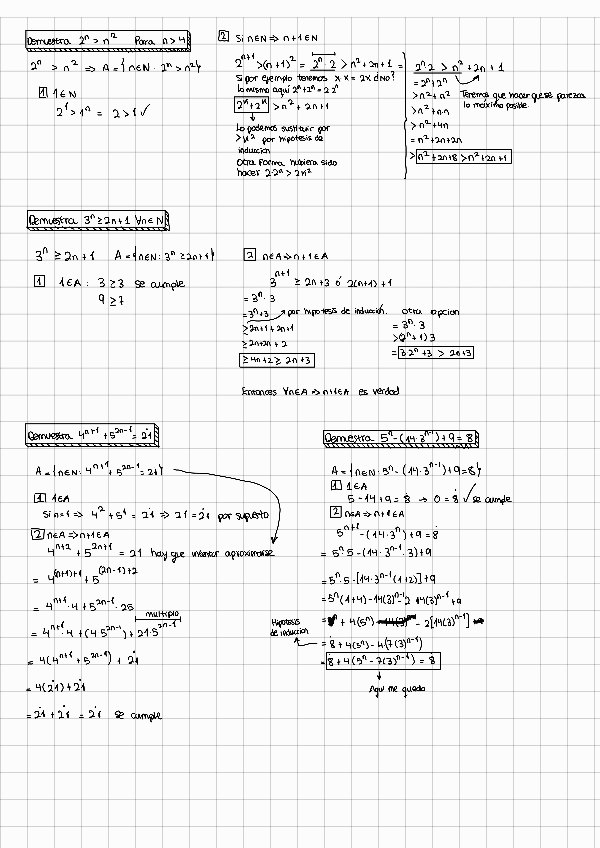 Demuestra 2ⁿ > n² Para n > 4
2ⁿ > n² ⇒ A = {n∈N: 2ⁿ > n²}
1 1∈N
2¹ > 1ⁿ = 2 > 1 ✓
2 Si n∈N ⇒ n+1∈N
2ⁿ⁺¹ > (n+1)² = 2ⁿ·2 > n²+2n+1 =
Si por ejemplo tenemos x x = 2x ¿No?
lo mismo aquí 2ⁿ+2ⁿ = 2·2ⁿ
2ⁿ+2ⁿ > n²+2n+1
↓
Lo podemos sustituir por
> n² por hipotesis de
inducción
Otra forma hubiera sido
hacer 2·2ⁿ > 2n²
2ⁿ·2 > n²+2n+1
= 2ⁿ+2ⁿ
> n²+n² Tenemos que hacer que se parezca
lo máximo posible.
> n²+n·n
> n²+4n
= n²+2n+2n
> n²+2n+8 > n²+2n+1
Demuestra 3ⁿ ≥ 2n+1 ∀n∈N
3ⁿ ≥ 2n+1 A = {n∈N: 3ⁿ ≥ 2n+1}
1 1∈A: 3 ≥ 3 se cumple
9 ≥ 7
2 n∈A ⇒ n+1∈A
3ⁿ⁺¹ ≥ 2n+3 ó 2(n+1)+1
= 3ⁿ·3
= 3ⁿ+3 → por hipotesis de inducción.
> 2n+1+2n+1
≥ 2n+2n+2
≥ 4n+2 ≥ 2n+3
otra opcion
= 3ⁿ·3
> (2ⁿ+1)3
= 3·2ⁿ+3 > 2n+3
Entonces ∀n∈A ⇒ n+1∈A es verdad
Demuestra 4ⁿ⁺¹+5²ⁿ⁻¹ = 2̇1
A = {n∈N: 4ⁿ⁺¹+5²ⁿ⁻¹ = 2̇1}
1 1∈A
Si n=1 ⇒ 4²+5¹ = 2̇1 ⇒ 21 = 2̇1 por supuesto
2 n∈A ⇒ n+1∈A
4ⁿ⁺²+5²ⁿ⁺¹ = 21 hay que intentar aproximarse
= 4⁽ⁿ⁺¹⁾⁺¹+5⁽²ⁿ⁻¹⁾⁺²
= 4ⁿ⁺¹·4+5²ⁿ⁻¹·25
multiplo
= 4ⁿ⁺¹·4+(4·5²ⁿ⁻¹)+21·5²ⁿ⁻¹
= 4(4ⁿ⁺¹+5²ⁿ⁻¹)+2̇1
= 4(2̇1)+2̇1
= 2̇1+2̇1 = 2̇1 se cumple
Demuestra 5ⁿ-(14·3ⁿ⁻¹)+9 = 8̇
A = {n∈N: 5ⁿ-(14·3ⁿ⁻¹)+9 = 8̇}
1 1∈A
5-14+9 = 8̇ → 0 = 8̇ ✓ se cumple
2 n∈A ⇒ n+1∈A
5ⁿ⁺¹-(14·3ⁿ)+9 = 8̇
= 5ⁿ·5-(14·3ⁿ⁻¹·3)+9
= 5ⁿ·5-[14·3ⁿ⁻¹(1+2)]+9
= 5ⁿ(1+4)-14(3)ⁿ⁻¹-2·14(3)ⁿ⁻¹+9
= + 4(5ⁿ) - 2[14(3)ⁿ⁻¹]
Hipotesis
de inducción
= 8̇+4(5ⁿ)-4(7(3)ⁿ⁻¹)
= 8̇+4(5ⁿ-7(3)ⁿ⁻¹) = 8̇
↓
Aqui me quedo